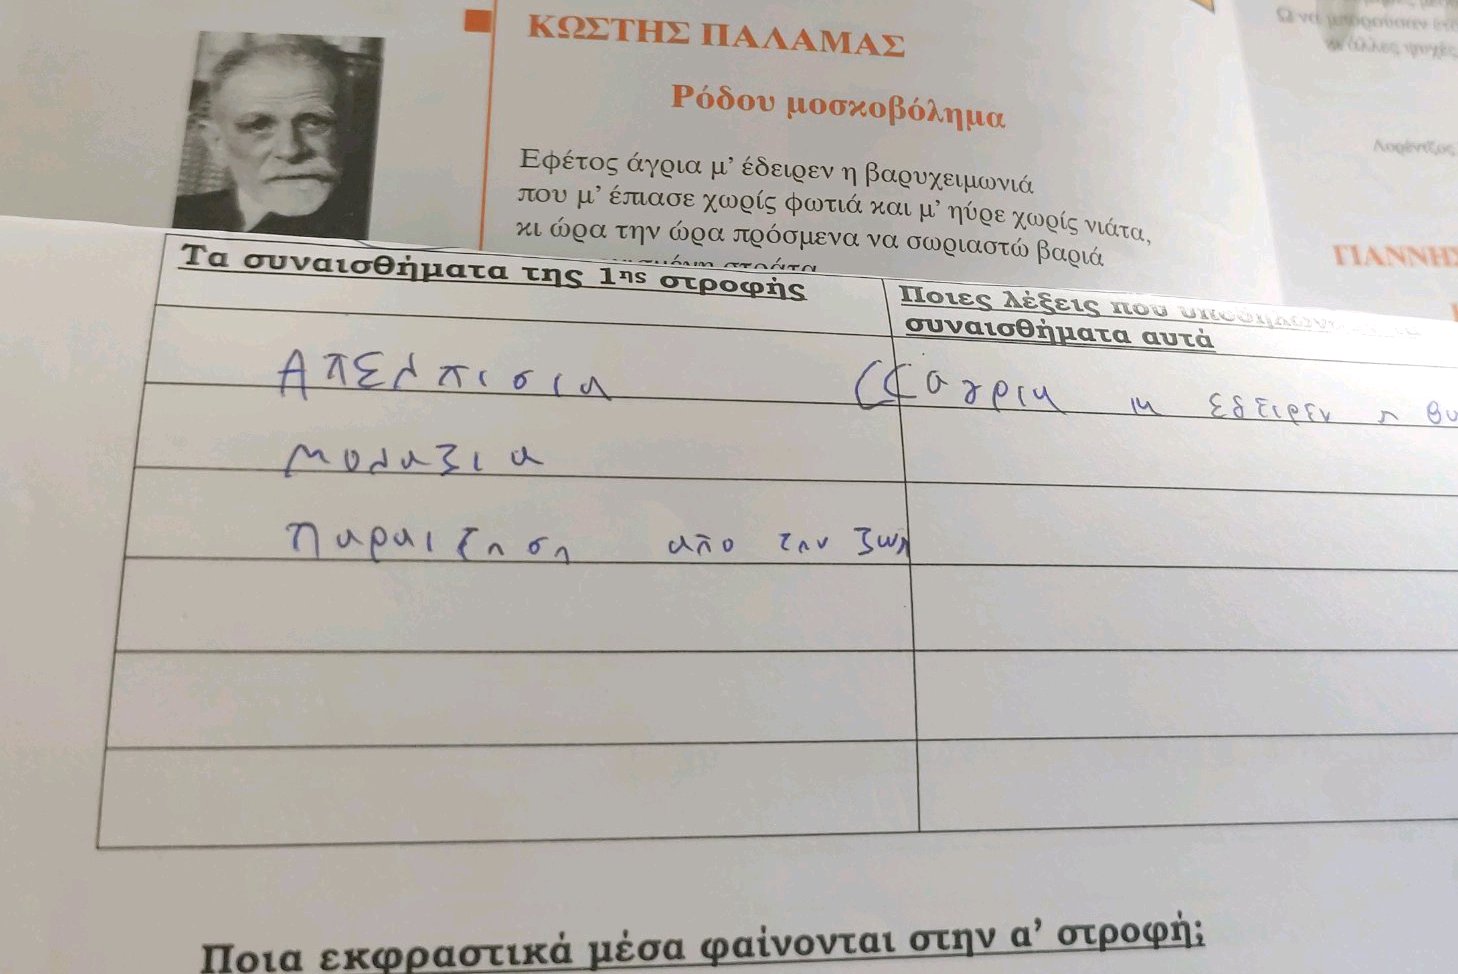 ΚΩΣΤΗΣ ΠΑΛΑΜΑΣ
Ρόδου μοσκοβόλημα
Εφέτος άγρια μ' έδειρεν η βαρυχειμωνιά
που μ' έπιασε χωρίς φωτιά και μ' ηύρε χωρίς νιάτα,
κι ώρα την ώρα πρόσμενα να σωριαστώ βαριά
στράτα
ΓΙΑΝΝΗΣ
Τα συναισθήματα της 1ης στροφής
Ποιες λέξεις που
συναισθήματα αυτά
Απελπισια
αγρια μ εδειρεν η
μοναξια
παραιτηση απο την ζωη
Ποια εκφραστικά μέσα φαίνονται στην α' στροφή;